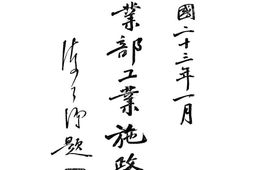 國二十三年一月
業部工業施政
陳公博題